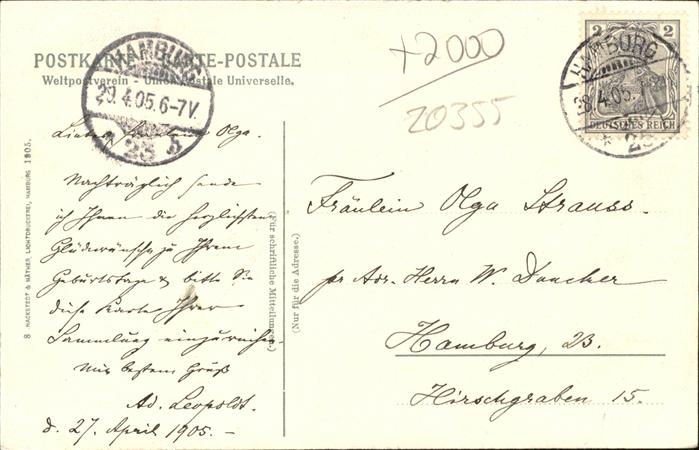 POSTKARTE - CARTE-POSTALE
Weltpostverein - Union Postale Universelle.
HAMBURG
29.4.05.6-7V.
25
+2000
20355
2 2
HAMBURG
28.4.05
DEUTSCHES REICH
* 25
Liebes Fräulein Olga.
Nachträglich sende
ich Ihnen die herzlichsten
Glückwünsche zu Ihrem
Geburtstage & bitte Sie
diese Karte Ihrer
Sammlung einzureihen.
Mit bestem Gruß
Ad. Leopoldt.
d. 27. April 1905. -
(Für schriftliche Mitteilungen.)
(Nur für die Adresse.)
Fräulein Olga Strauss.
pr. Adr. Herrn W. Dancker
Hamburg, 23.
Hirschgraben 15.
8 HACKSTEDT & NÄTHER, LICHTDRUCKEREI, HAMBURG 1905.